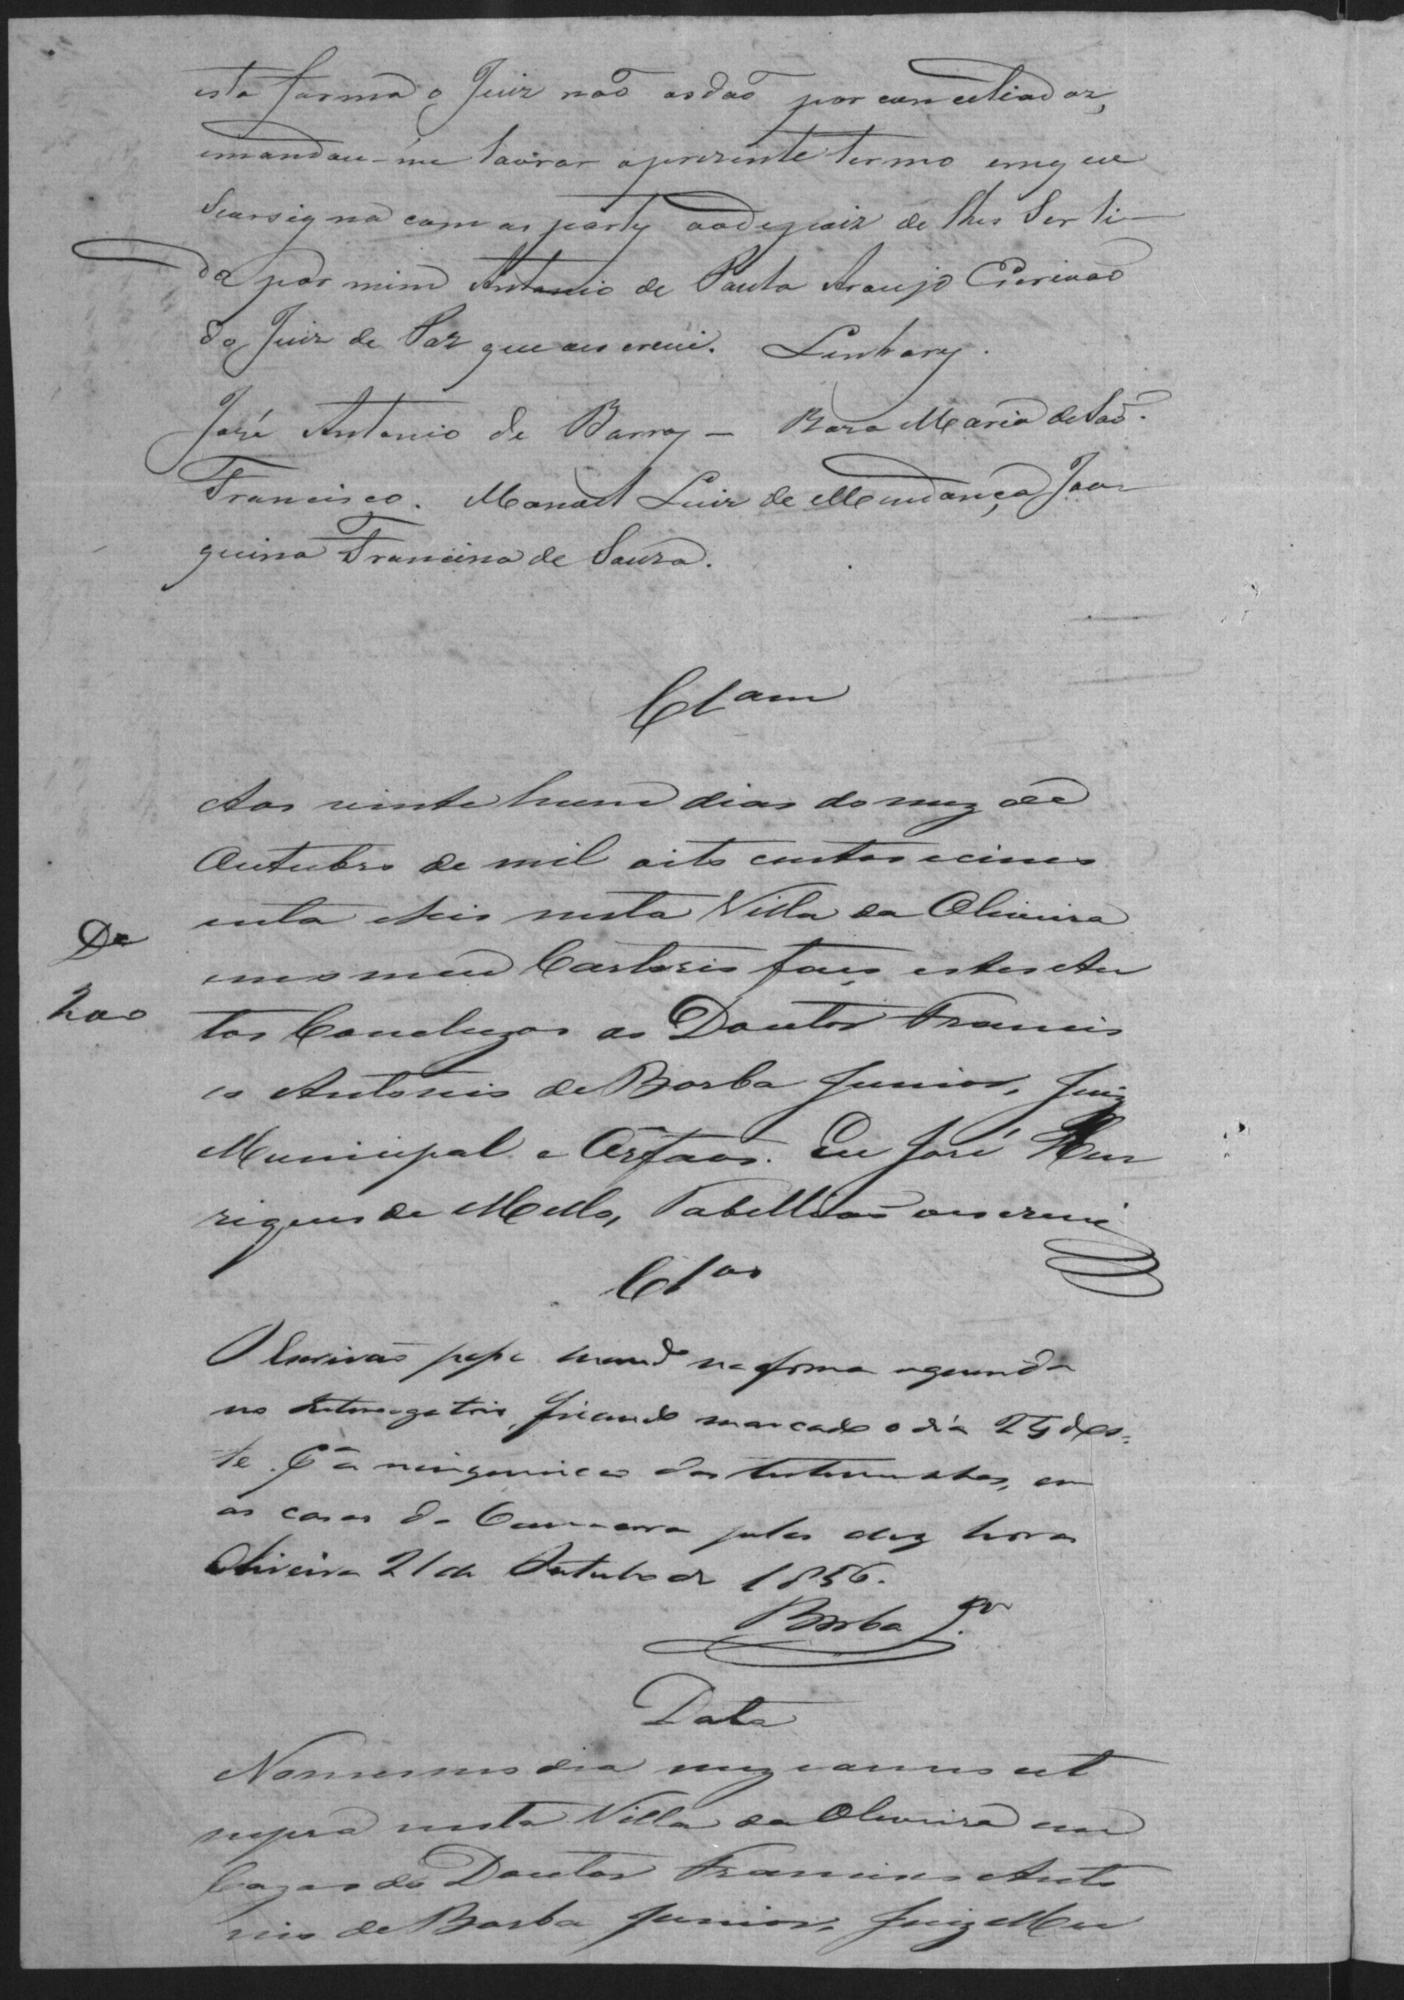 esta forma o Juiz não os dão por conciliados,
emandou-me lavrar apresente termo emque
Seassigna comas partes aodepois de lhes Ser li-
do por mim Antonio de Paula Araujo Escrivão
do Juiz de Paz que escrevi. Linhares.
José Antonio de Barros — Roza Maria de São
Francisco. Manoel Luiz de Mendança Joa
quina Francisca de Souza.
Clam
Aos vinte hum dias do mez de
Outubro de mil oito centos e cinco
enta eseis nesta Villa da Oliveira
emomeu Cartorio faço estes Au
tos Concluzos ao Doutor Francis
co Antonio de Borba Junior, Juiz
Municipal e Orfaos. Eu José Hen
riques de Mello, Tabellião oescrevi
De
200
Clos
O Escrivão passe mand na forma requerida
no Interrogatorio, ficando marcado o dia 24 des-
te para a inquirição das testemunhas, em
as casas da Camara pelas dez horas
Oliveira 21 de Outubro de 1856.
Borba Jor
Data
Nomesmo dia mez eanno ut
supra nesta Villa da Oliveira em
Cazas do Doutor Francisco Anto
nio de Borba Junior, Juiz Mu